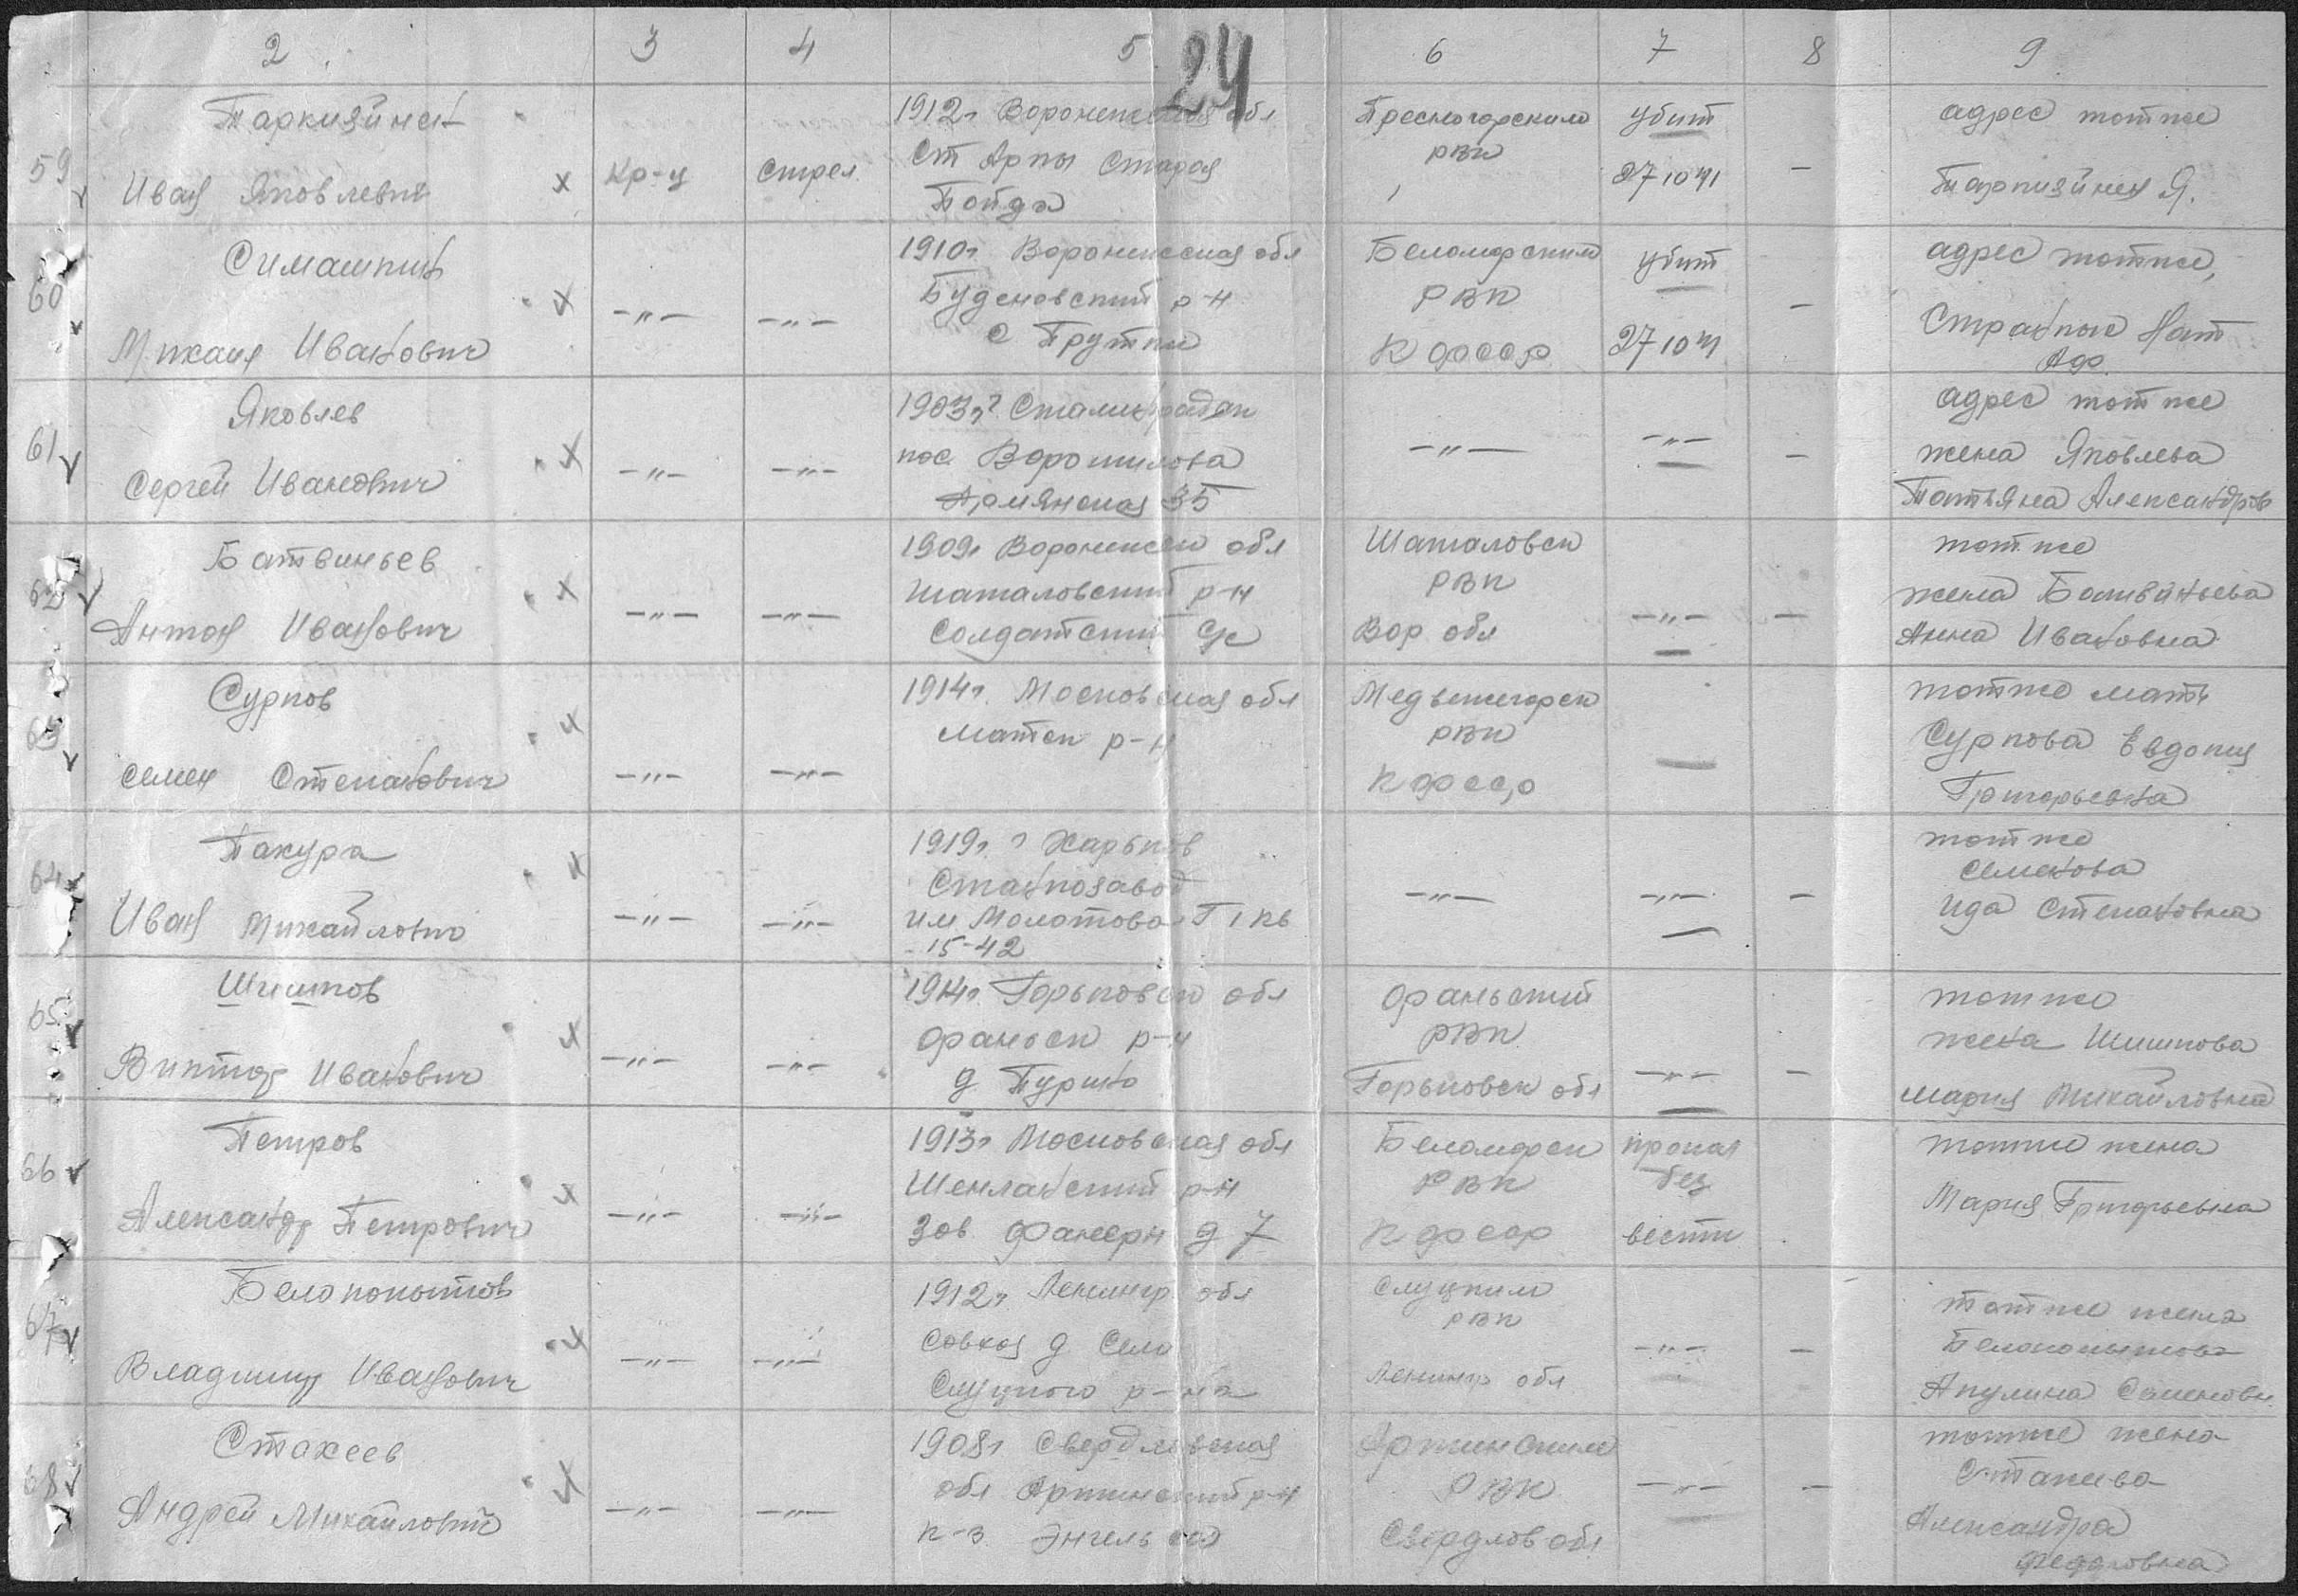 2 3 4 5 24 6 7 8 9
59
Таркизийнен
Иван Яковлевич
х
Кр-ц
Стрел
1912г Воронежская обл
Ст Арпы Старая
Пойда
Пресногорским
РВК
убит
27 10 41
–
адрес тотже
Я.
60
Симашкин
Михаил Иванович
х
–"–
–"–
1910г. Воронежская обл
Буденовский р-н
с Прутки
Беломорским
РВК
КФССР
убит
27 10 41
–
адрес тотже,
Нат
61
Яковлев
Сергей Иванович
х
–"–
–"–
1903г г Сталинград
пос. Ворошилова
Армянская 35
–"–
–"–
–
адрес тот же
жена Яковлева
Татьяна Александров
62
Батвиньев
Антон Иванович
х
–"–
–"–
1909г Воронежск обл
Шаталовский р-н
Солдатский С/с
Шаталовск
РВК
Вор обл
–"–
–
тот же
жена Батвиньева
Анна Ивановна
63
Сурков
Семен Степанович
х
–"–
–"–
1914г. Московская обл
р-н
Медвежегорск
РВК
КФССР
тотже мать
Суркова Евдокия
Григорьевна
64
Пакура
Иван Михайлович
х
–"–
–"–
1919г. г Харьков
Станкозавод
им Молотова Т 1 кв
15-42
–"–
–"–
–
тот же
Семенова
Ида Степановна
65
Шишков
Виктор Иванович
х
–"–
–"–
1914г. Горьковск обл
р-н
д.
РВК
Горьковск обл
–"–
–
тотже
жена Шишкова
Мария Михайловна
66
Петров
Александр Петрович
х
–"–
–"–
1913г Московская обл
р-н
Зав Фанерн д 7
Беломорск
РВК
КФССР
пропал
без
вести
тотже жена
Мария Григорьевна
67
Белокопытов
Владимир Иванович
х
–"–
–"–
1912г. Ленингр обл
Совхоз д Села
Слуцкого р-на
Слуцким
РВК
Ленингр обл
–"–
–
тотже жена
Белокопытова
Акулина Семеновн.
68
Стахеев
Андрей Михайлович
х
–"–
–"–
1908г Свердловская
обл Артинский р-н
к-з Энгельса
Артинским
РВК
Свердлов обл
–"–
–
тотже жена
Стахиева
Александра
Федоровна